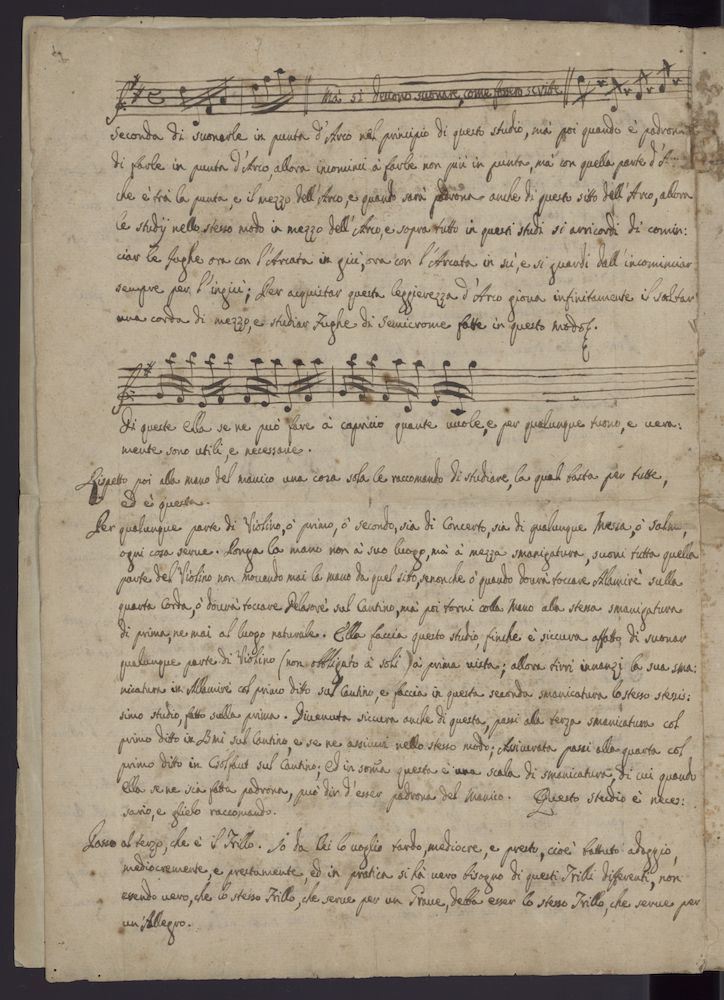 Mà si devono suonare, come fossero scritte
seconda di suonarle in punta d'Arco nel principio di questo studio, mà poi quando è padrona
di farle in punta d'Arco, allora incominci à farle non più in punta, mà con quella parte d'A
che è trà la punta, e il mezzo dell'Arco, e quando sarà padrona anche di questo sito dell'Arco, allora
le studij nello stesso modo in mezzo dell'Arco, e sopra tutto in questi studi si arricordi di comin:
ciar le fughe ora con l'Arcata in giù, ora con l'Arcata in sù, e si guardi dall'incominciar
sempre per l'ingiù; Per acquistar questa leggierezza d'Arco giova infinitamente il saltar
una corda di mezzo, e studiar Fughe di semicrome fatte in questo modo.
Di queste Ella se ne può fare à capricio quante vuole, e per qualunque tuono, e vera:
mente sono utili, e necessarie.
Rispetto poi alla mano del manico una cosa sola le raccomando di studiare, la qual basta per tutte,
ed è questa.
Per qualunque parte di Violino, ò primo, ò secondo, sia di Concerto, sia di qualunque Messa, ò Salmo,
ogni cosa serve. Ponga la mano non à suo luogo, mà à mezza smanigatura, suoni tutta quella
parte del Violino non movendo mai la mano da quel sito, senonche ò quando dovrà toccare Alamirè sulla
quarta Corda, ò dovrà toccare Delasorè sul Cantino, mà poi torni colla Mano alla stessa smanigatura
di prima, ne mai al luogo naturale. Ella faccia questo studio, finche è siccura affatto di suonar
qualunque parte di Violino (non obbligato à soli) à prima vista; allora tirri innanzj la sua sma:
nicatura in Allamirè col primo dito sul Cantino, e faccia in questa seconda smanicatura lo stesso stesis:
simo studio, fatto sulla prima. Divenuta siccura anche di questa, passi alla terza smanicatura col
primo dito in Bmì sul Cantino, e se ne assicuri nello stesso modo; Assicurata passi alla quarta col
primo dito in Csolfaut sul Cantino; ed in somma questa è una scala di smanicatura, di cui quando
Ella se ne sia fatta padrona, può dir d'esser padrona del Manico. Questo studio è neces:
sario, e glielo raccomando.
Passo al terzo, che è il Trillo. Io da lei lo voglio tardo, mediocre, e presto, cioè battuto adaggio,
mediocremente, e prestamente, ed in pratica si hà vero bisogno di questi Trilli differenti, non
essendo vero, che lo stesso Trillo, che serve per un Grave, debba esser lo stesso Trillo, che serve per
un'Allegro.